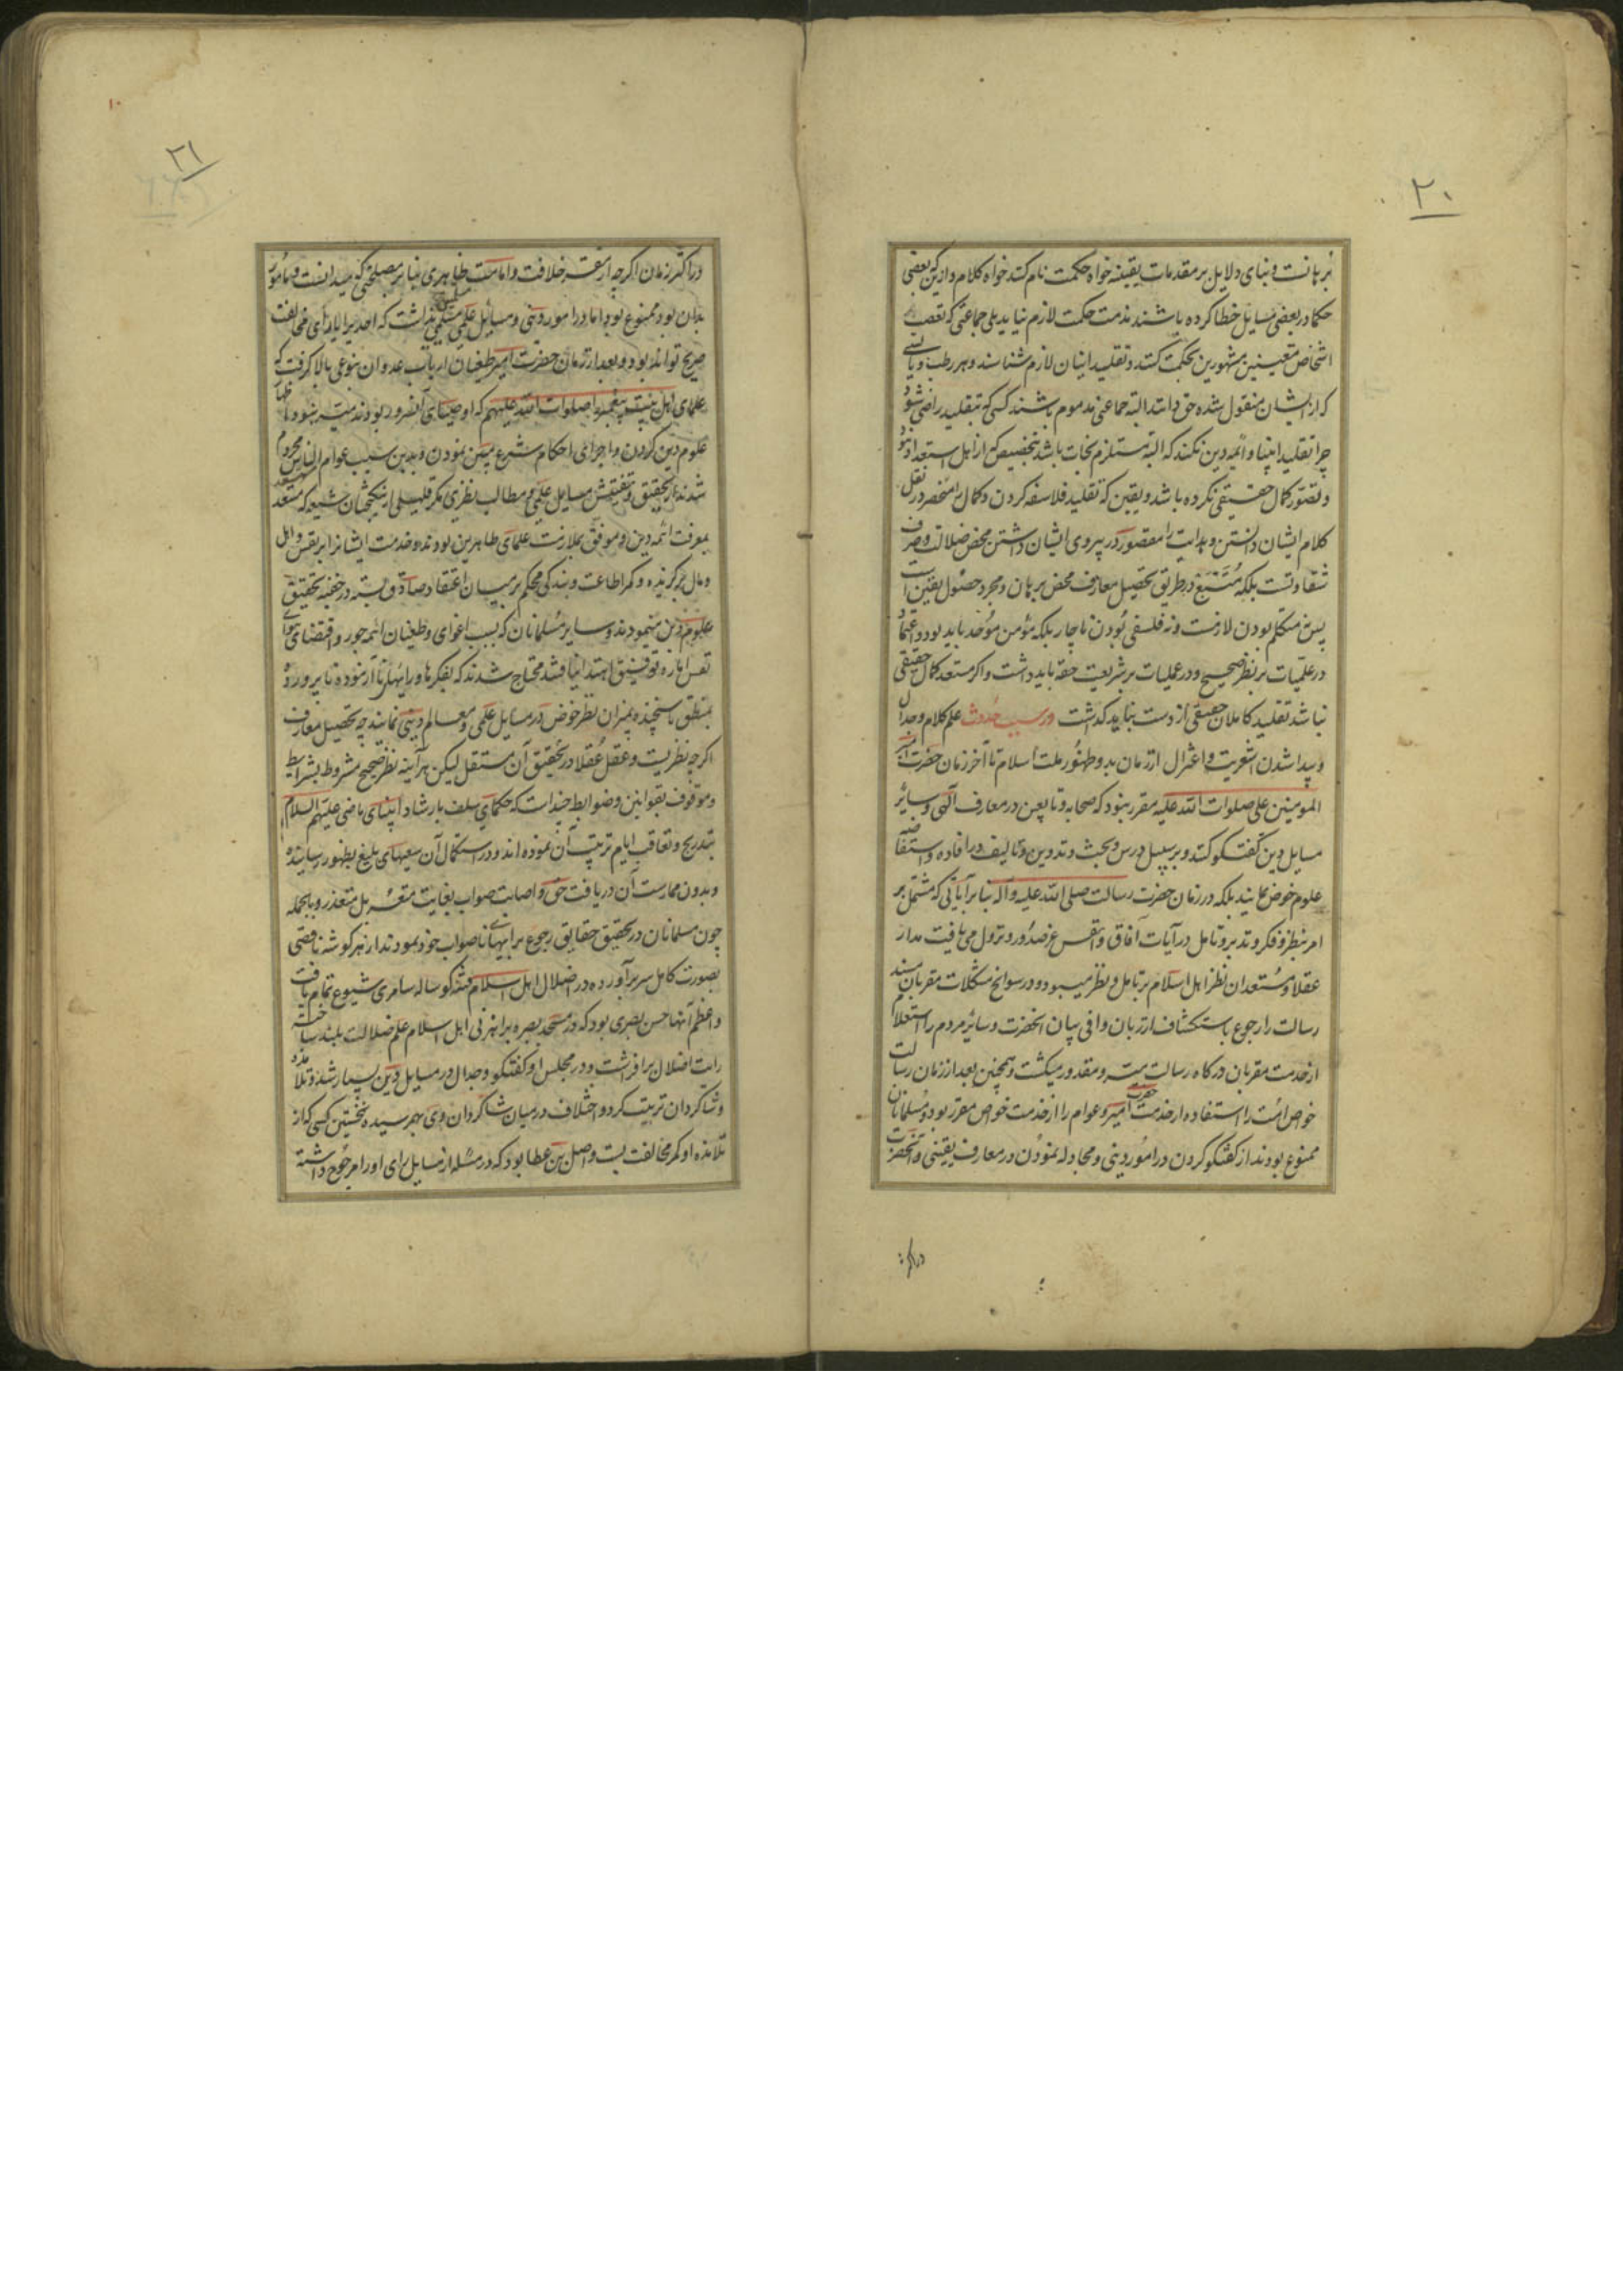 ۲۰
برهانست و بنای دلایل بر مقدمات یقینیه خواه حکمت نام کنند خواه کلام و ازینکه بعضی
حکما در بعضی مسایل خطا کرده باشند مذمت حکمت لازم نیاید بلی جماعتی که تعصب
اشخاص معینین مشهورین بحکمت کنند و تقلید ایشان لازم شناسند و هر رطب و یابسی
که از ایشان منقول شده حق دانند البته جماعتی مذموم باشند کسی که بتقلید راضی شود
چرا تقلید انبیا و ائمه دین نکند که البته مستلزم نجات باشد بتخصیص که از اهل استعداد نبود
و تصور کمال حقیقی نکرده باشد و یقین که تقلید فلاسفه کردن و کمال را منحصر در نقل
کلام ایشان دانستن و هدایت را مقصور در پیروی ایشان داشتن محض ضلالت و صرف
شقاوتست بلکه متبع در طریق تحصیل معارف محض برهان و مجرد حصول یقین است
پس نه متکلم بودن لازمست و نه فلسفی بودن ناچار بلکه مؤمن موحد باید بود و اعتماد
در علمیات بر نظر صحیح و در عملیات بر شریعت حقه باید داشت و اگر مستعد کمال حقیقی
نباشد تقلید کاملان حقیقی از دست نباید گذاشت در سبب حدوث علم کلام و جدال
و پیدا شدن اشعریت و اعتزال از زمان بدو ظهور ملت اسلام تا آخر زمان حضرت امیر
المومنین علی صلوات الله علیه مقرر نبود که صحابه و تابعین در معارف الهی و سایر
مسایل دین گفتگو کنند و بر سبیل درس و بحث و تدوین و تالیف در افاده و استفاضه
علوم خوض نمایند بلکه در زمان حضرت رسالت صلی الله علیه و آله بنا بر آیاتی که مشتمل بر
امر بنظر و فکر و تدبر و تامل در آیات آفاق و انفس عز صدور و نزول می یافت مدار
عقلا و مستعدان نظر اهل اسلام بر تامل و نظر میبود و در سوانح مشکلات مقربان مسند
رسالت را رجوع باستکشاف از زبان وافی بیان آنحضرت و سایر مردم را استعلام
از خدمت مقربان درگاه رسالت میسر و مقدور میگشت و همچنین بعد از زمان رسالت
خواص امت را استفاده از خدمت حضرت امیر و عوام را از خدمت خواص مقرر بود و مسلمانان
ممنوع بودند از گفتگو کردن در امور دینی و مجادله نمودن در معارف یقینی و آنحضرت
در اکثر
۱۰
۲۱
در اکثر زمان اگرچه از مقر خلافت و امامت ظاهری بنا بر مصلحتی که میدانست و مامور
بدان بود ممنوع بود اما در امور دینی و مسایل علمی تسلطی نداشت که احدیرا یارای مخالفت
صریح تواند بود و بعد از زمان حضرت امیر طغیان ارباب عدوان بنوعی بالا گرفت که
علمای اهل بیت پیغمبر را صلوات الله علیهم که اوصیای آنسرور بودند میسر نبود اظهار
علوم دین کردن و اجرای احکام شرع مبین نمودن و بدین سبب عوام الناس محروم
شدند از تحقیق و تفتیش مسایل علمی و مطالب نظری مگر قلیلی از نیکبختان شیعه که مستعد
بمعرفت ائمه دین و موفق بملازمت علمای طاهرین بودند و خدمت ایشانرا بر نفس و اهل
و مال برگزیده و کمر اطاعت و بندگی محکم بر میان اعتقاد صادق بسته در خفیه تحقیق
علوم دین مینمودند و سایر مسلمانان که بسبب اغوای و طغیان ائمه جور و اقتضای هوای
نفس اماره توفیق اهتدا نیافتند محتاج شدند که بفکرها و رایهای ناآزموده نابرورده
بمنطق ناسنجیده بمیزان نظر خوض در مسایل علمی و معالم دینی نمایند چه تحصیل معارف
اگرچه نظریست و عقل عقلا در تحقیق آن مستقل لیکن هر آینه نظر صحیح مشروط بشرایط
و موقوف بقوانین و ضوابط چند است که حکمای سلف بارشاد انبیای ماضی علیهم السلام
بتدریج و تعاقب ایام ترتیب آن نموده اند و در استکمال آن سعیهای بلیغ بظهور رسانیده
و بدون ممارست آن دریافت حق و اصابت صواب بغایت متعسر بل متعذر و بالجمله
چون مسلمانان در تحقیق حقایق رجوع برایهای ناصواب خود نمودند از هر گوشه ناقصی
بصورت کامل سر برآورده در اضلال اهل اسلام فتنه گوساله سامری شیوع تمام یافت
و اعظم آنها حسن بصری بود که در مسجد بصره براهزنی اهل اسلام علم ضلالت بلند ساخته
رایت اضلال برافراشت و در مجلس او گفتگو و جدال در مسایل دین بسیار شد و تلامذه
و شاگردان تربیت کرد و اختلاف در میان شاگردان وی بهم رسیده نخستین کسی که از
تلامذه او کمر مخالفت بست واصل بن عطا بود که در مسئله از مسایل رای او را مرجوح داشته